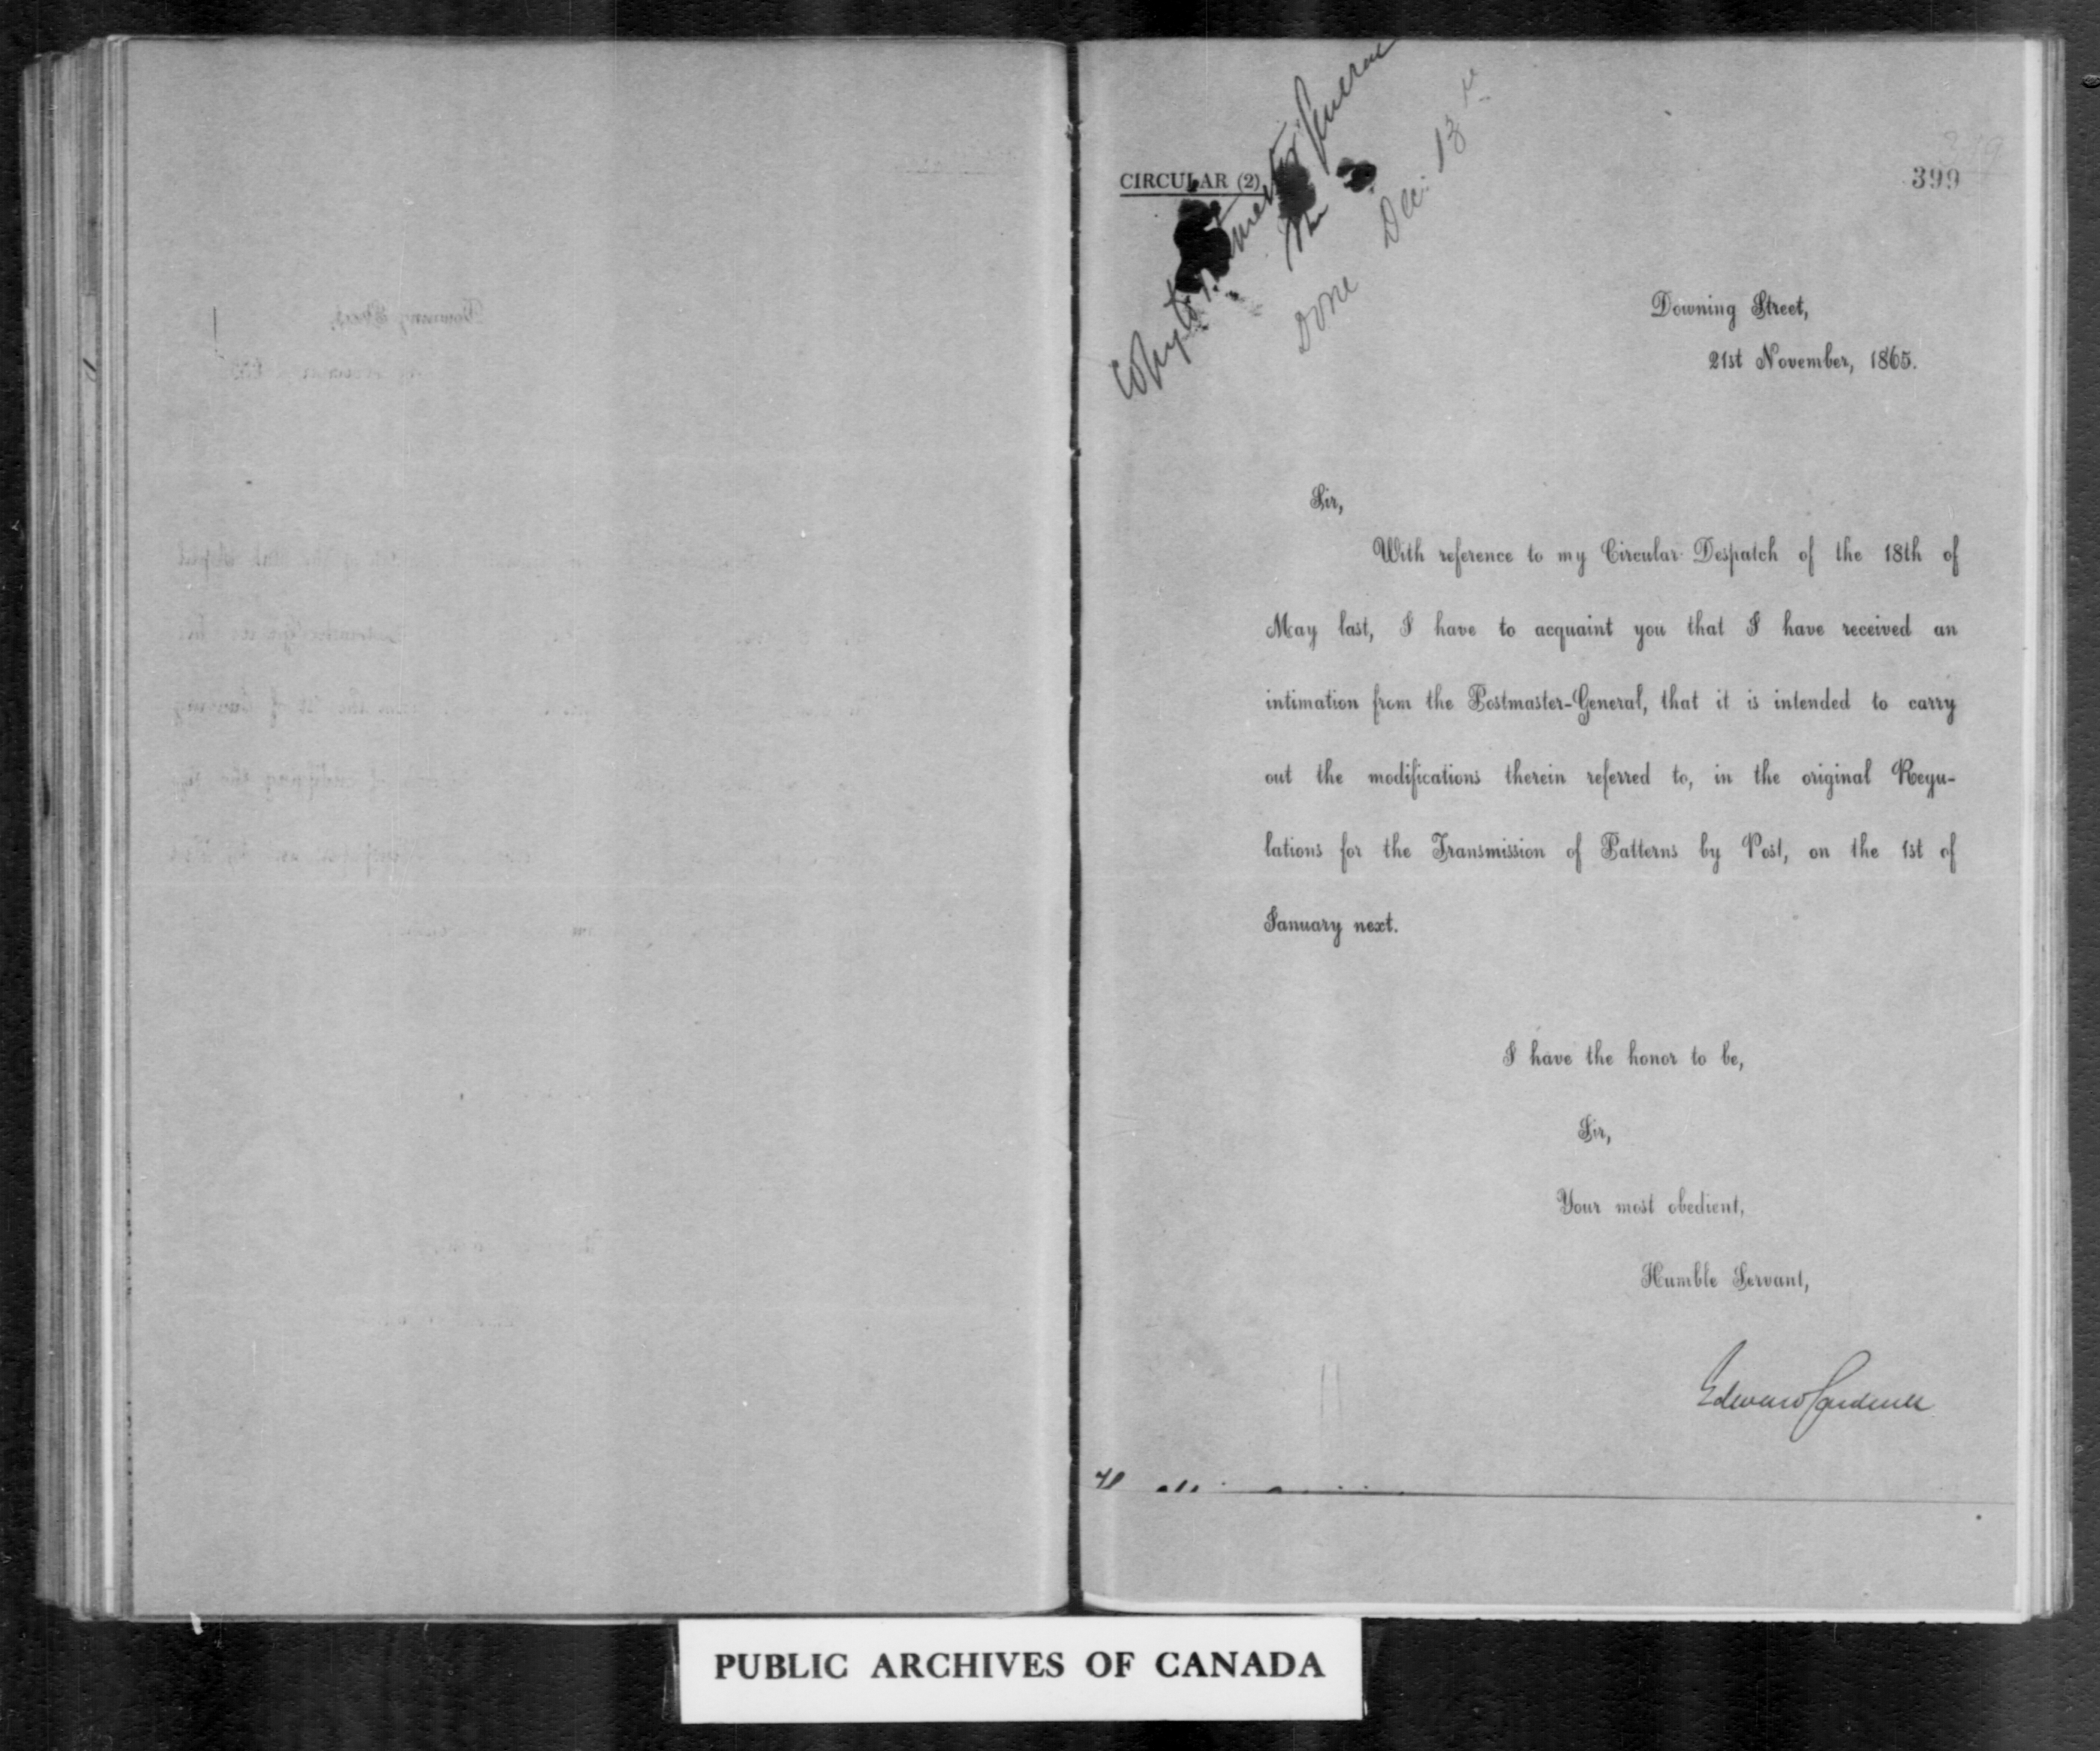 CIRCULAR (2)
399
Copy to Postmaster General
Done Dec. 13
Downing Street,
21st November, 1865.
Sir,
With reference to my Circular Despatch of the 18th of
May last, I have to acquaint you that I have received an
intimation from the Postmaster-General, that it is intended to carry
out the modifications therein referred to, in the original Regu-
lations for the Transmission of Patterns by Post, on the 1st of
January next.
I have the honor to be,
Sir,
Your most obedient,
Humble Servant,
Edward Cardwell
PUBLIC ARCHIVES OF CANADA